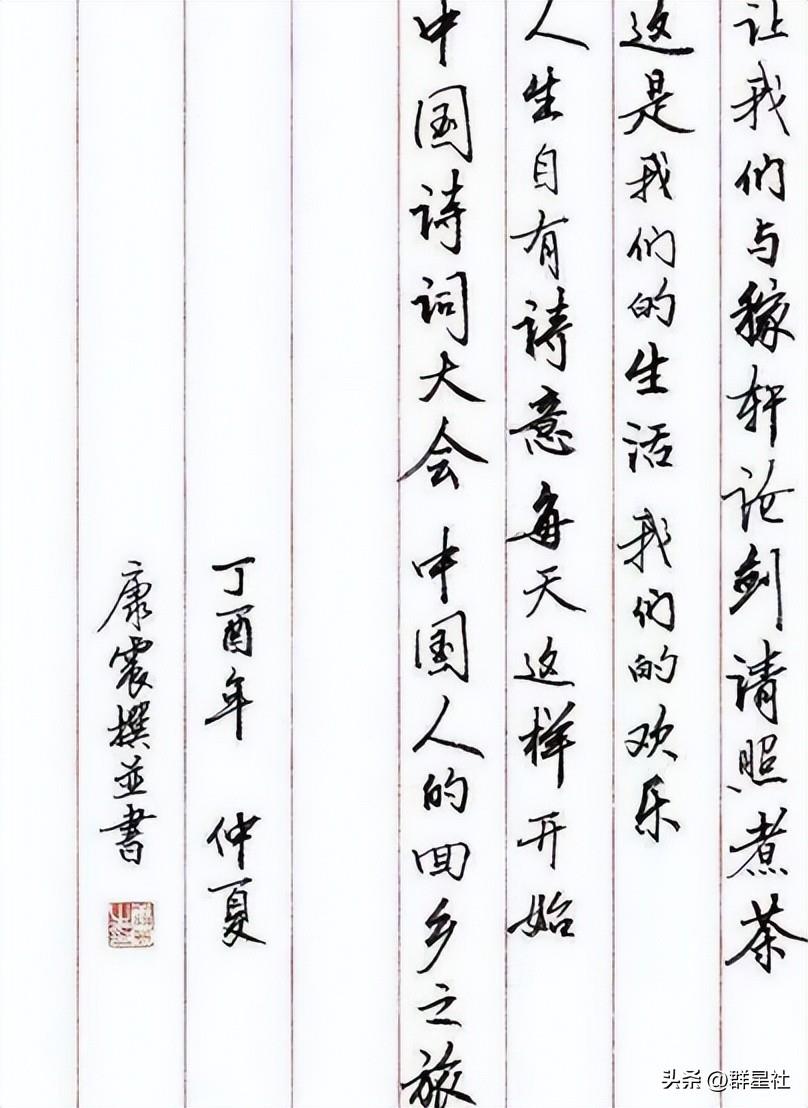 让我们与稼轩论剑请照煮茶
这是我们的生活 我们的欢乐
人生自有诗意每天这样开始
中国诗词大会 中国人的回乡之旅
丁酉年 仲夏
康震撰并書
头条 @群星社